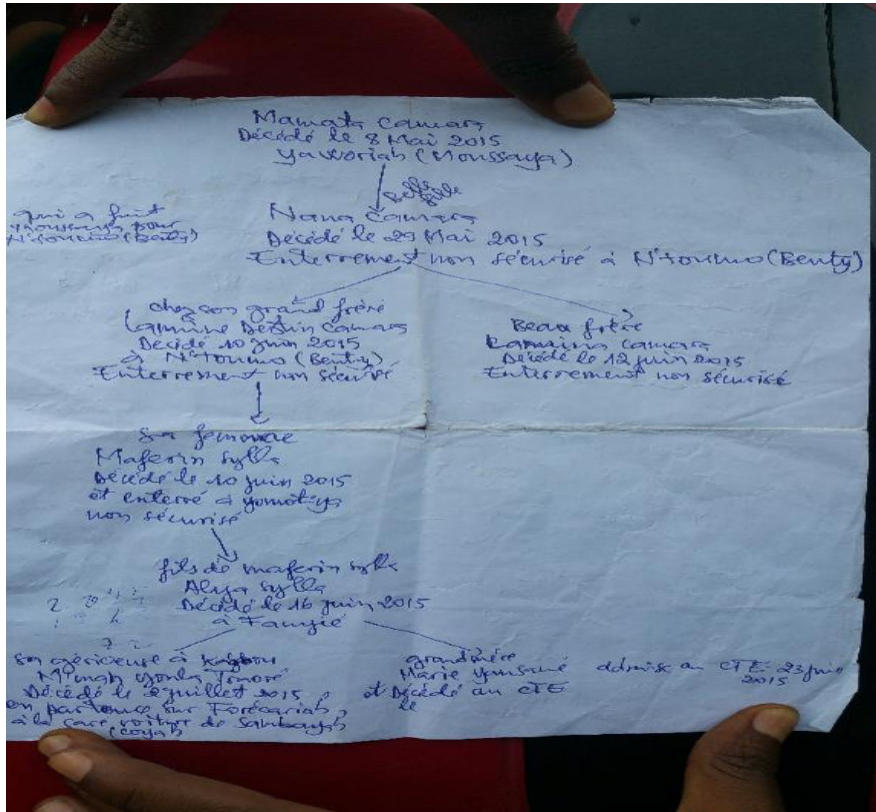 Mamata Camara
Décédé le 8 Mai 2015
Yaworiah (Moussaya)
Belle fille
qui a fuit
Moussaya pour
N'toumo (Benty)
Nana Camara
Décédé le 29 Mai 2015
Enterrement non sécurisé à N'toumo (Benty)
chez son grand frère
Lamine Camara
Décédé 10 juin 2015
à N'toumo (Benty)
Enterrement non sécurisé
Beau frère
Lamina Camara
Décédé le 12 juin 2015
Enterrement non sécurisé
Sa femme
Maferin Sylla
Décédé le 10 juin 2015
et enterré à
non sécurisé
fils de maferin sylla
Alya Sylla
Décédé le 16 juin 2015
à
son à
M'mah
Décédé le 2 juillet 2015
en partance sur Forécariah,
à la gare voiture de
(Coyah
grand mère
Marie
et Décédé au CTE
le
admise au CTE 23 juin
2015